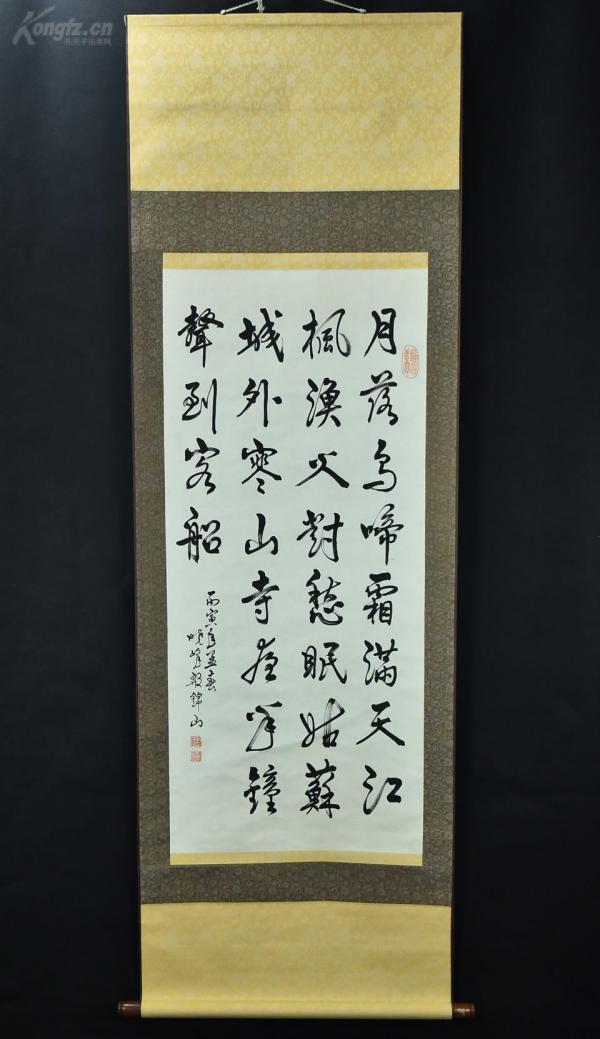 Kongfz.cn
孔夫子拍卖网
月落烏啼霜滿天江
楓漁火對愁眠姑蘇
城外寒山寺夜半鐘
聲到客船
丙寅年春
曉峰錦山